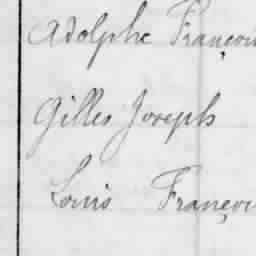 Adolphe François
Gilles Joseph
Louis François